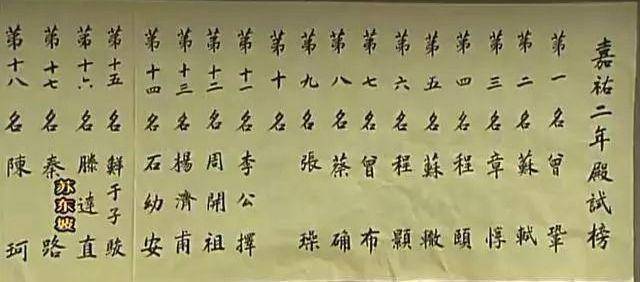 嘉祐二年殿試榜
第一名曾鞏
第二名蘇軾
第三名章惇
第四名程頤
第五名蘇轍
第六名程顥
第七名曾布
第八名蔡确
第九名張璪
第十名
第十一名李公擇
第十二名周開祖
第十三名楊濟甫
第十四名石幼安
第十五名鮮于子駿
第十六名滕達直
第十七名秦路
第十八名陳珂
苏东坡